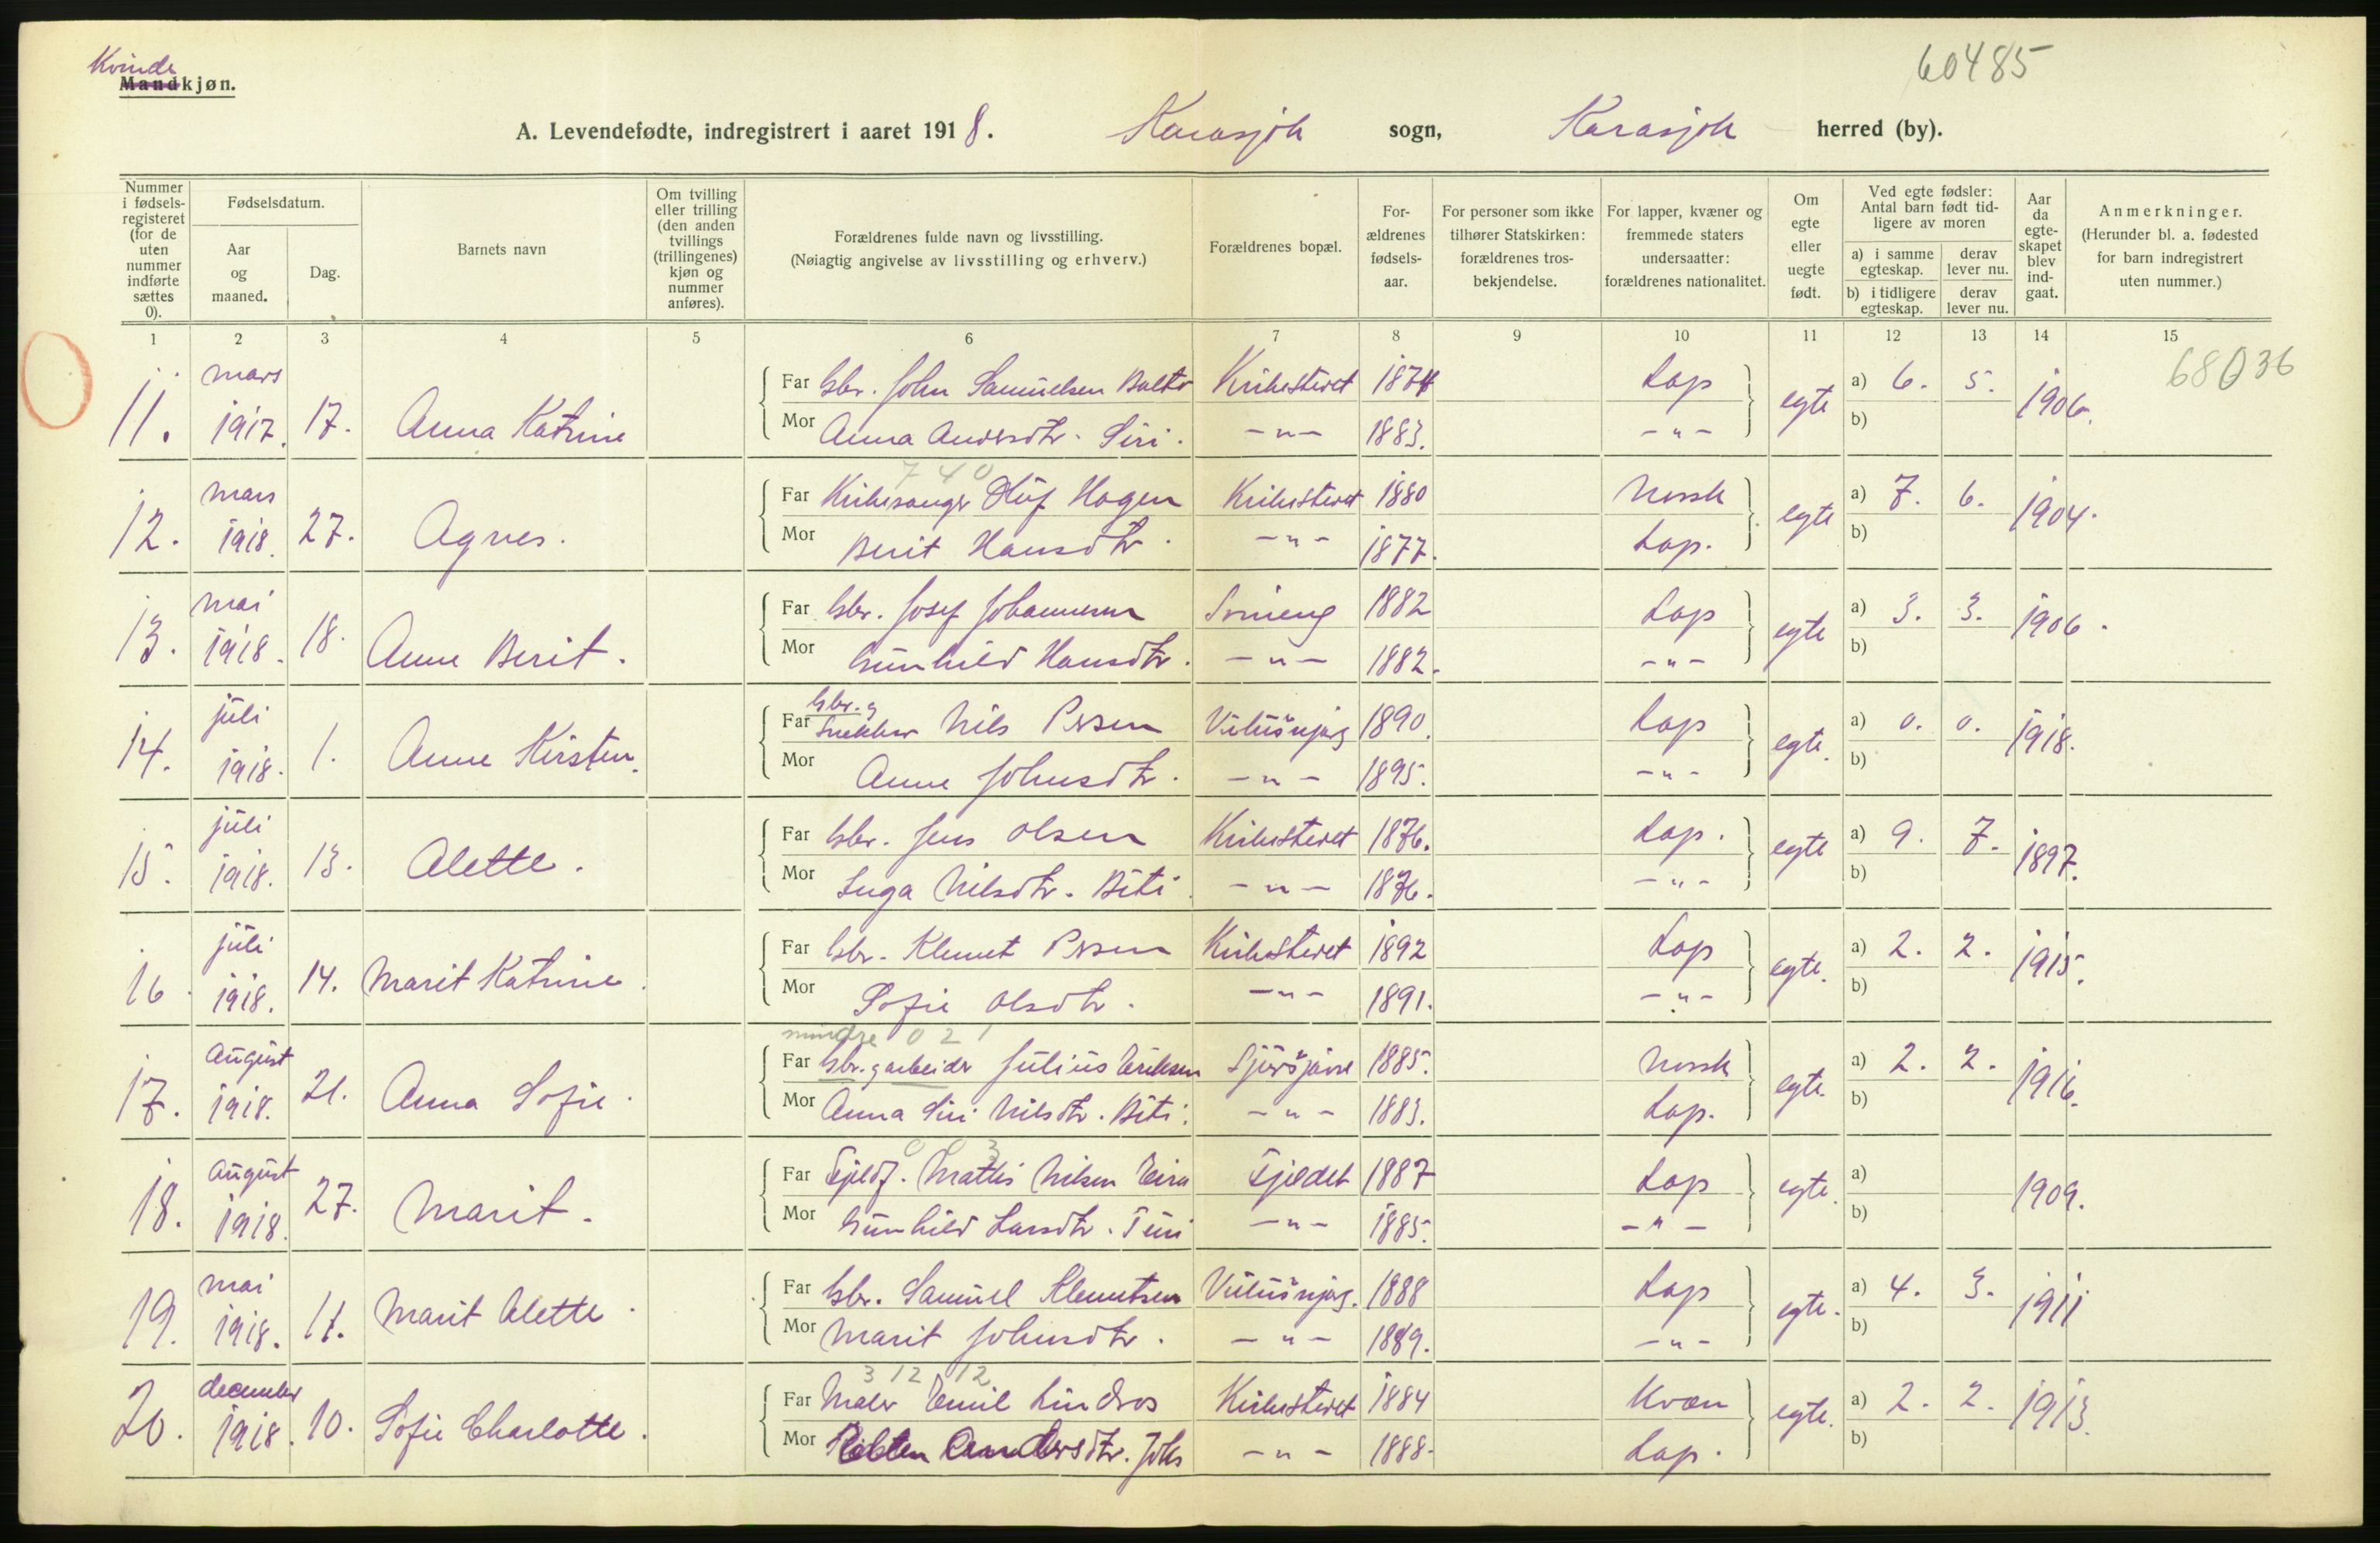 Kvinde
Mandkjøn.
60485
A. Levendefødte, indregistrert i aaret 1918. Karasjok sogn, Karasjok herred (by).
Nummer i fødsels-registeret (for de uten nummer indførte sættes 0).
Fødselsdatum.
Aar og maaned.
Dag.
Barnets navn
Om tvilling eller trilling (den anden tvillings (trillingenes) kjøn og nummer anføres).
Forældrenes fulde navn og livsstilling.
(Nøiagtig angivelse av livsstilling og erhverv.)
Forældrenes bopæl.
For-ældrenes fødsels-aar.
For personer som ikke tilhører Statskirken: forældrenes tros-bekjendelse.
For lapper, kvæner og fremmede staters undersaatter: forældrenes nationalitet.
Om egte eller uegte født.
Ved egte fødsler: Antal barn født tid-ligere av moren
a) i samme egteskap. derav lever nu.
b) i tidligere egteskap. derav lever nu.
Aar da egte-skapet blev ind-gaat.
Anmerkninger.
(Herunder bl. a. fødested for barn indregistrert uten nummer.)
1 2 3 4 5 6 7 8 9 10 11 12 13 14 15
68036
11. mars 1917. 17. Anna Katrine
Far Gbr. John Samuelsen Balto Kirkestedet 1874 Lap egte a) 6. 5. 1906.
Mor Anna Andersdtr. Siri. -"- 1883. -"- b)
740
12. mars 1918. 27. Agnes.
Far Kirkesanger Oluf Hagen Kirkestedet 1880 Norsk egte a) 7. 6. 1904.
Mor Berit Hansdtr. -"- 1877. Lap. b)
13. mai 1918. 18. Anne Berit.
Far Gbr. Josef Johannesen 1882 Lap egte a) 3. 3. 1906.
Mor Gunhild Hansdtr. -"- 1882. -"- b)
14. juli 1918. 1. Anne Kirsten.
Far Gbr. g Snekker Nils Persen 1890. Lap egte. a) 0. 0. 1918.
Mor Anne Johnsdtr. -"- 1895. -"- b)
15. juli 1918. 13. Alette.
Far Gbr. Jens Olsen Kirkestedet 1876. Lap. egte a) 9. 7. 1897.
Mor Inga Nilsdtr. Biti. -"- 1876. -"- b)
16. juli 1918. 14. Marit Katrine.
Far Gbr. Klemet Persen Kirkestedet 1892 Lap egte. a) 2. 2. 1915.
Mor Sofie Olsdtr. -"- 1891. -"- b)
mindre 021
17. August 1918. 21. Anna Sofie.
Far Gbr. g arbeider Julius Eriksen 1885. Norsk egte. a) 2. 2. 1916.
Mor Anna Siri Nilsdtr. Biti. -"- 1883. Lap. b)
0 0 3
18. August 1918. 27. Marit.
Far Fjeldf. Mattis Nilsen Eira Fjeldet 1887 Lap egte. a) 1909.
Mor Gunhild Larsdtr. Turi -"- 1885. -"- b)
19. mai 1918. 11. Marit Alette.
Far Gbr. Samuel Klemetsen 1888 Lap egte. a) 4. 3. 1911
Mor Marit Johnsdtr. -"- 1889. -"- b)
3 12 12
20. december 1918. 10. Sofie Charlotte.
Far Maler Emil Lindros Kirkestedet 1884 Kvæn egte. a) 2. 2. 1913.
Mor Andersdtr. -"- 1888. Lap. b)